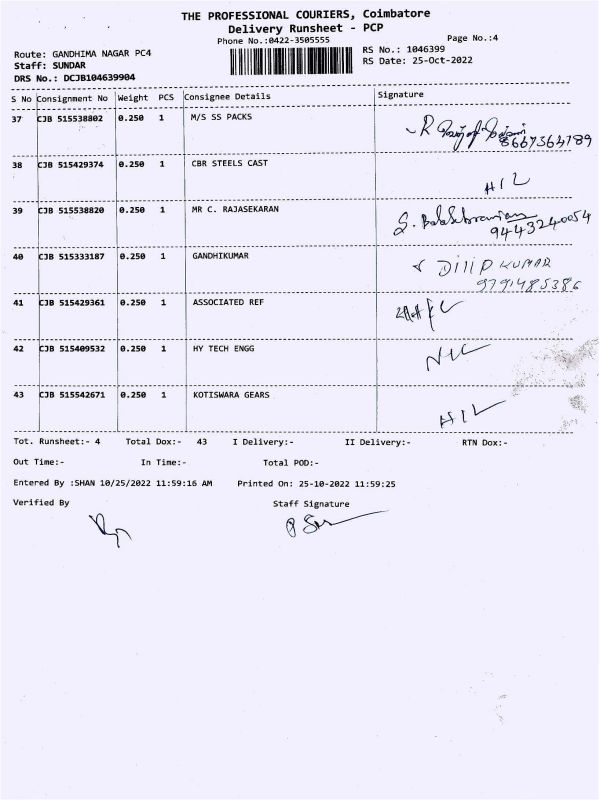 THE PROFESSIONAL COURIERS, Coimbatore
Delivery Runsheet - PCP
Phone No.:0422-3505555
Page No.:4
Route: GANDHIMA NAGAR PC4
RS No.: 1046399
Staff: SUNDAR
RS Date: 25-Oct-2022
DRS No.: DCJB104639904
S No Consignment No Weight PCS Consignee Details Signature
37 CJB 515538802 0.250 1 M/S SS PACKS R
8667364789
38 CJB 515429374 0.250 1 CBR STEELS CAST
39 CJB 515538820 0.250 1 MR C. RAJASEKARAN
9443240054
40 CJB 515333187 0.250 1 GANDHIKUMAR DILIP KUMAR
9791485386
41 CJB 515429361 0.250 1 ASSOCIATED REF
42 CJB 515409532 0.250 1 HY TECH ENGG
43 CJB 515542671 0.250 1 KOTISWARA GEARS
Tot. Runsheet:- 4 Total Dox:- 43 I Delivery:- II Delivery:- RTN Dox:-
Out Time:- In Time:- Total POD:-
Entered By :SHAN 10/25/2022 11:59:16 AM Printed On: 25-10-2022 11:59:25
Verified By Staff Signature